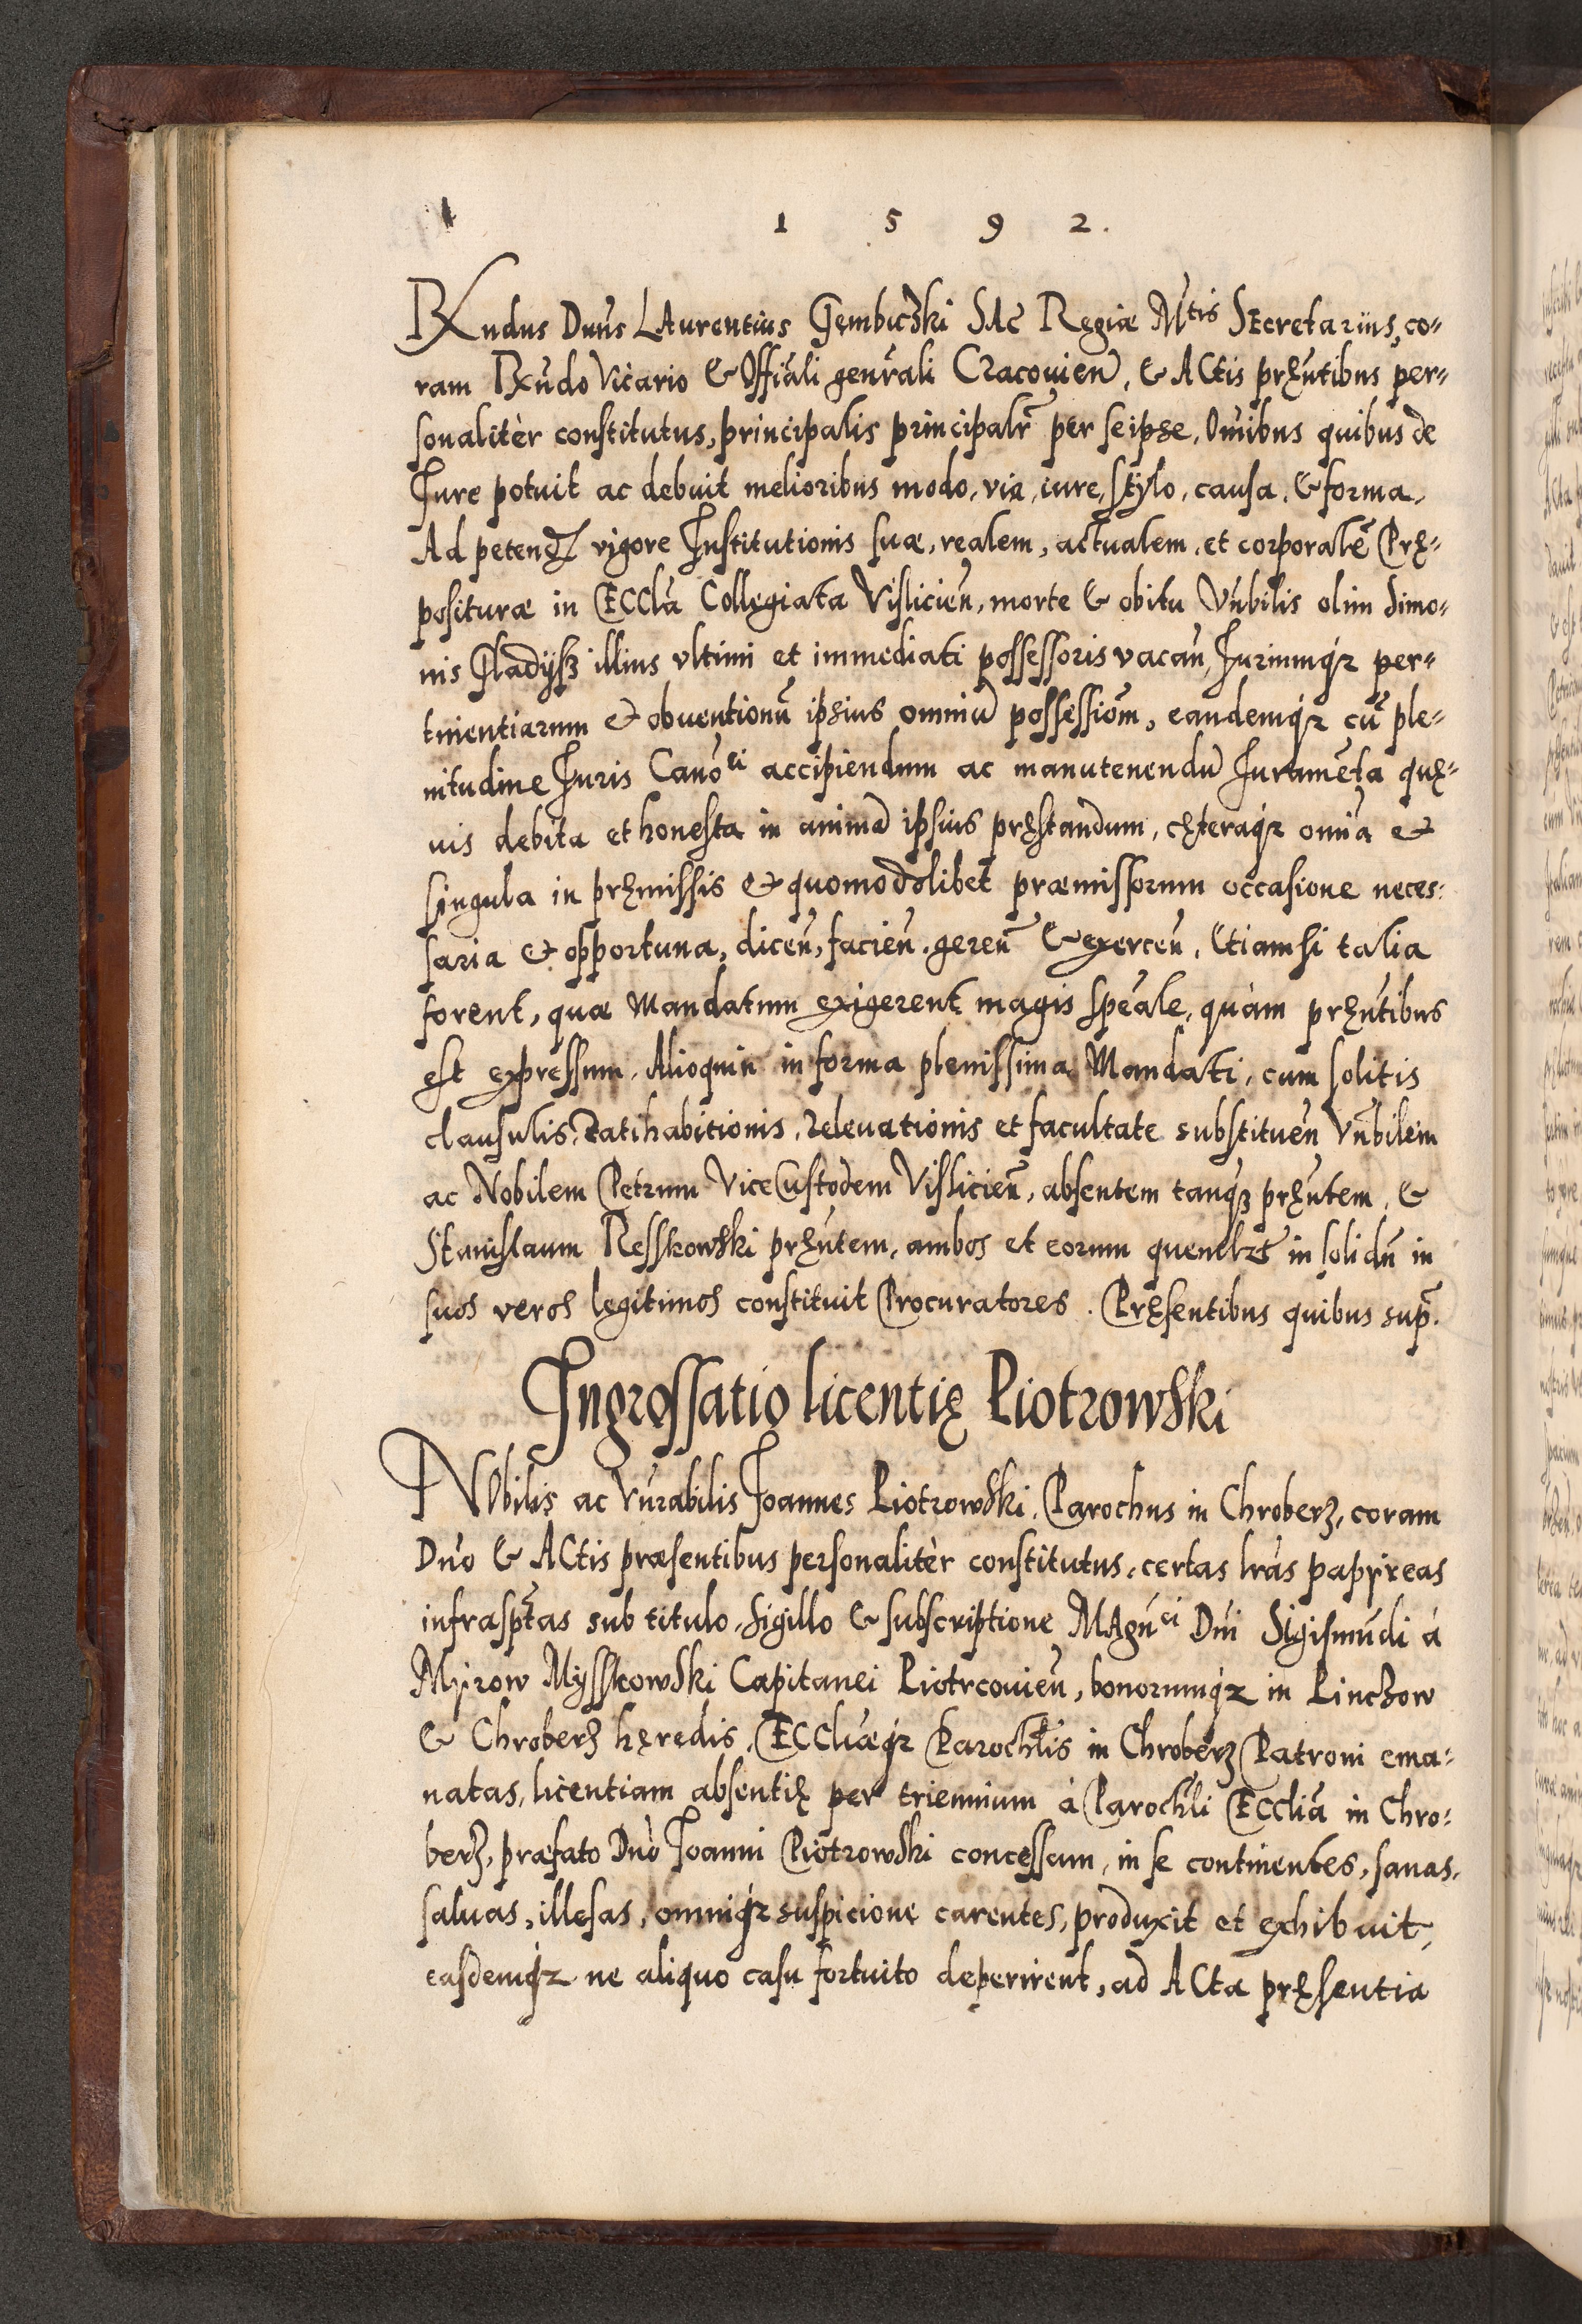 1 5 9 2.
RXndus Dnus LAurentius Gembiczki SAc Regiæ Mtis SEcretarius, co-
ram RXndo Vicario & Offiali genrali Cracouien, & ACtis pręntibus per-
sonalitèr constitutus, principalis principalr per seipse, Omibus quibus de
Jure potuit ac debuit melioribus modo, via, iure, stylo, causa, & forma,
Ad petend vigore Institutionis suæ, realem, actualem, et corporalē Prę-
posituræ in ECCla Collegiata Visliciен, morte & obitu Vnbilis olim Simo-
nis Gladysz illius vltimi et immediati possessoris vacan, Juriumq́z per-
tinentiarum & obuentionū ipsius omniū possessiom, eandemq́z cū ple-
nitudine Juris Canoci accipiendum ac manutenendū Juramēta quę-
uis debita et honesta in animā ipsius pręstandum, cęteraq́z omia &
singula in pręmissis & quomodolibet præmissorum occasione neces-
saria & opportuna, dicen, facien, geren & exercen, Etiamsi talia
forent, quæ Mandatum exigerent magis speale, quàm pręntibus
est expressum, Alioquin in forma plenissima Mandati, cum solitis
clausulis, ratihabitionis, releuationis et facultate substituen Vnbilem
ac Nobilem Petrum ViceCustodem Vislicien, absentem tanqz pręntem, &
Stanislaum Resskowski pręntem, ambos et eorum quemlzt in solidū in
suos veros legitimos constituit Procuratores. Pręsentibus quibus sup.
Ingrossatio licentię Piotrowski
NObilis ac Vnrabilis Joannes Piotrowski, Parochus in Chroberz, coram
Dno & ACtis præsentibus personalitèr constitutus, certas lras papyreas
infrasptas sub titulo, sigillo & subscriptione MAgnci Dni Sigismūdi à
Myrow Mysskowski Capitanei Piotrcouien, bonorumq́z in Pinczow
& Chroberz hęredis, ECCliæq́z Parochlis in Chroberz Patroni ema-
natas, licentiam absentię per triennium à Parochli ECClia in Chro-
berz, præfato Dno Joanni Piotrowski concessam, in se continentes, sanas,
saluas, illesas, omniq́z suspicione carentes, produxit et exhibuit,
easdemq́z ne aliquo casu fortuito deperirent, ad ACta pręsentia